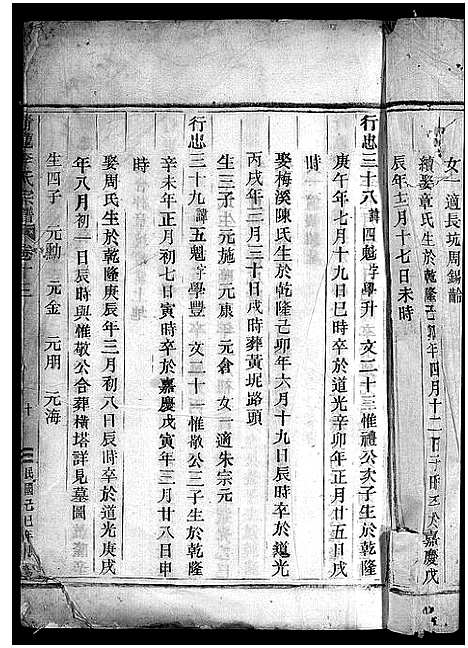 女一適長坑周錫齡
續娶章氏生於乾隆己卯年四月十二日子時卒於嘉慶戊
辰年十二月十七日未時
行忠三十八諱四魁字學升 文二十三惟禮公次子生於乾隆
庚午年七月十九日巳時卒於道光辛卯年正月廿五日戌
時
娶梅溪陳氏生於乾隆己卯年六月十九日辰時卒於道光
丙戌年三月三十日戌時葬黃坭路頭
生三子 元施 元康 元倉 女一適朱宗元
行忠三十九諱五魁字學豐 文二十一惟敬公三子生於乾隆
辛未年正月初七日寅時卒於嘉慶戊寅年三月廿八日申
時
娶周氏生於乾隆庚辰年三月初八日辰時卒於道光庚戌
年八月初一日辰時與惟敬公合葬橫塔詳見墓圖
生四子 元勳 元金 元朋 元海
李氏宗譜 卷十三 民國己巳年